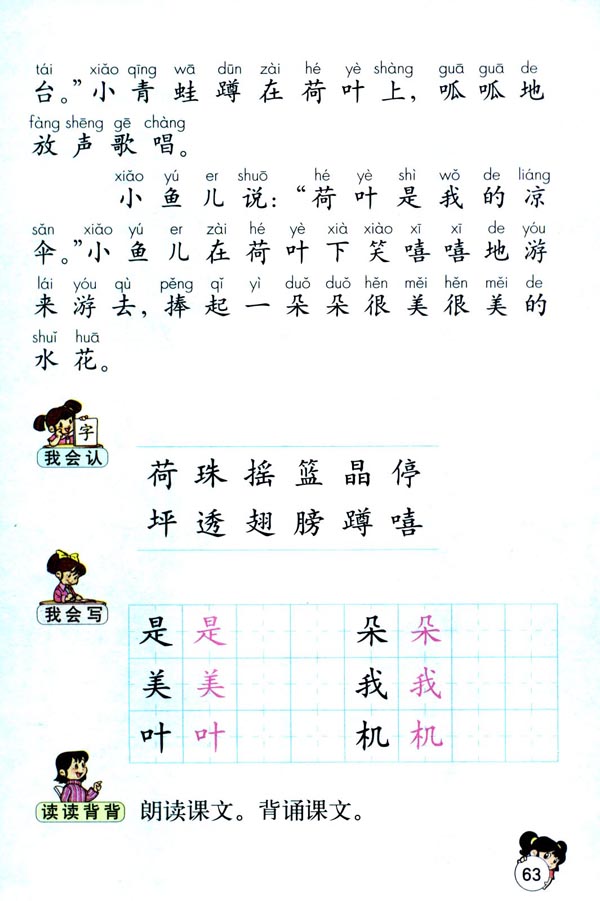 tái xiǎo qīng wā dūn zài hé yè shàng guā guā de
台。”小青蛙蹲在荷叶上，呱呱地
fàng shēng gē chàng
放声歌唱。
xiǎo yú er shuō hé yè shì wǒ de liáng
小鱼儿说：“荷叶是我的凉
sǎn xiǎo yú er zài hé yè xià xiào xī xī de yóu
伞。”小鱼儿在荷叶下笑嘻嘻地游
lái yóu qù pěng qǐ yì duǒ duǒ hěn měi hěn měi de
来游去，捧起一朵朵很美很美的
shuǐ huā
水花。
字
我会认
荷 珠 摇 篮 晶 停
坪 透 翅 膀 蹲 嘻
我会写
是 是 朵 朵
美 美 我 我
叶 叶 机 机
读读背背 朗读课文。背诵课文。
63